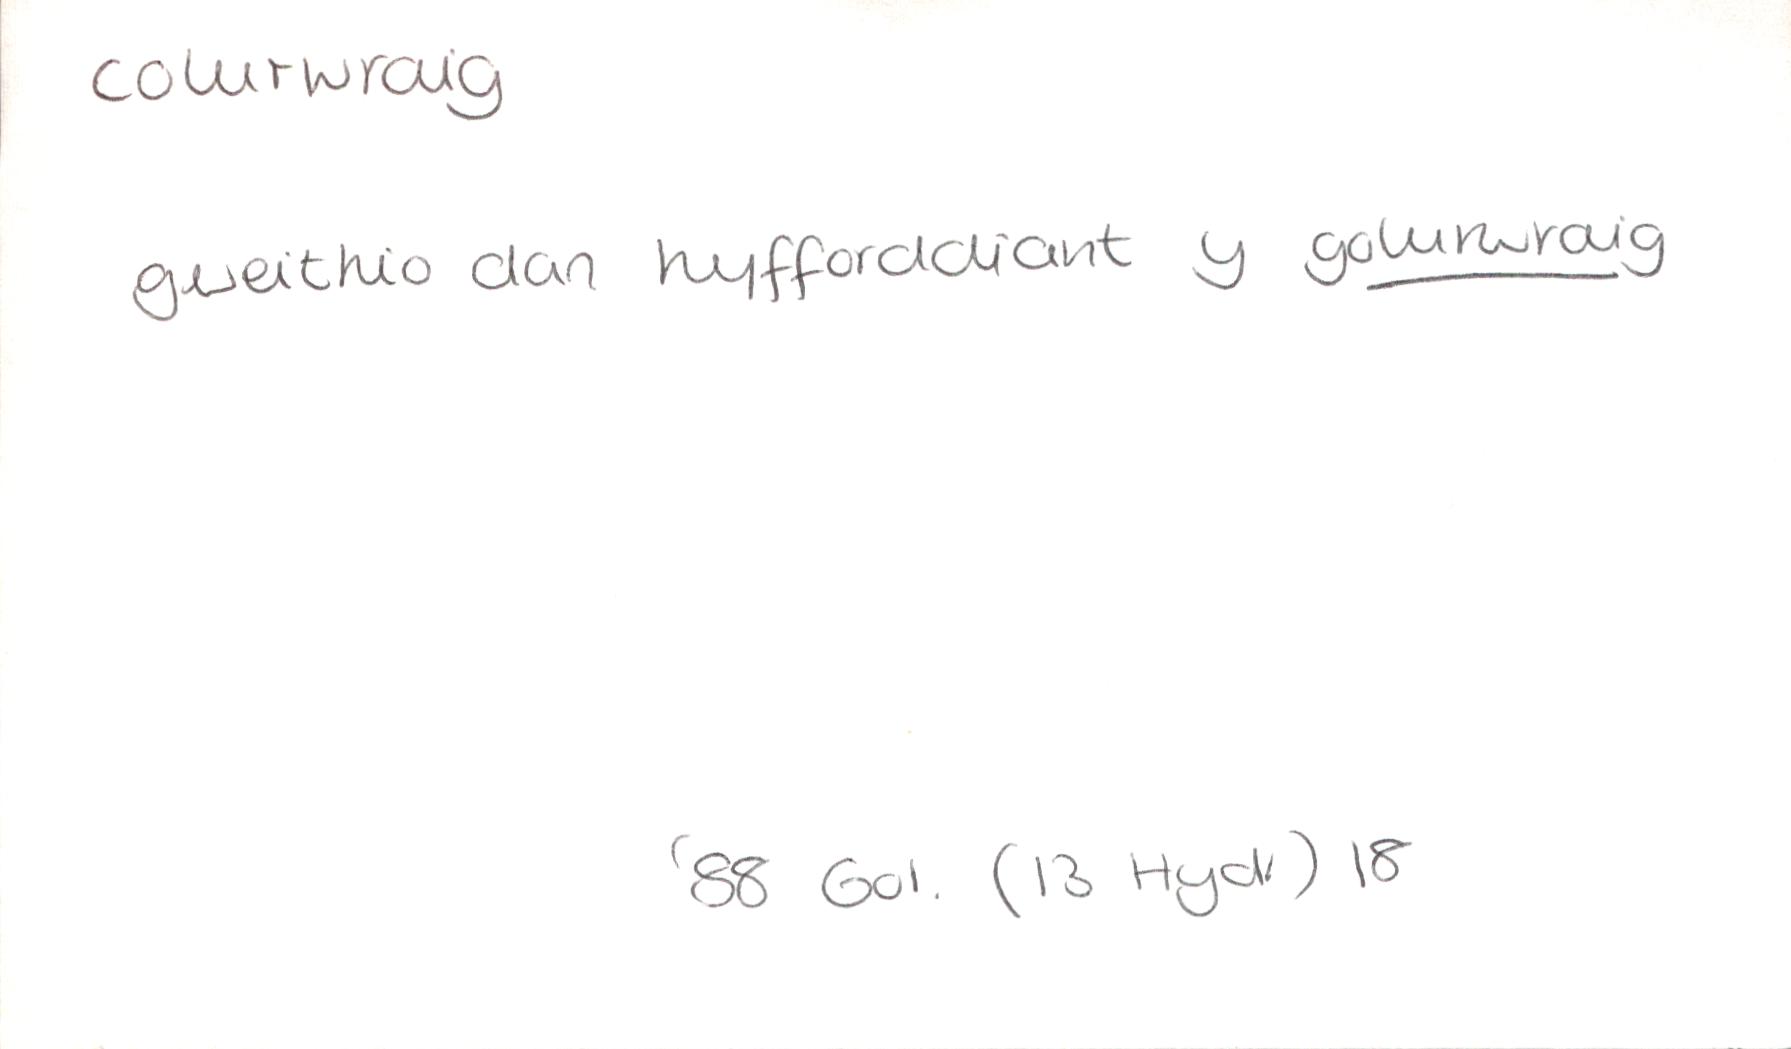 colurwraig
gweithio dan hyfforddiant y golurwraig
'88 Gol. (13 Hyd.) 18